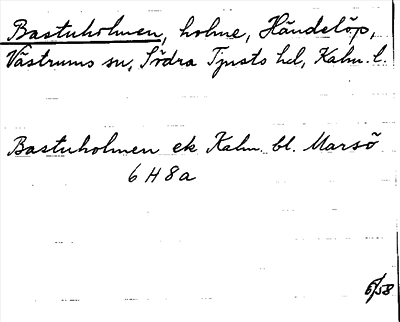 Bastuholmen, holme, Händelöp,
Västrums sn, Södra Tjusts hd, Kalm. l.
Bastuholmen ek Kalm. bl. Marsö
6 H 8 a
6/58